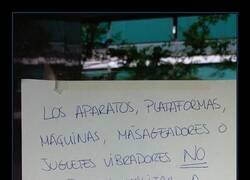 LOS APARATOS, PLATAFORMAS,
MÁQUINAS, MASAGEADORES O
JUGUETES VIBRADORES NO